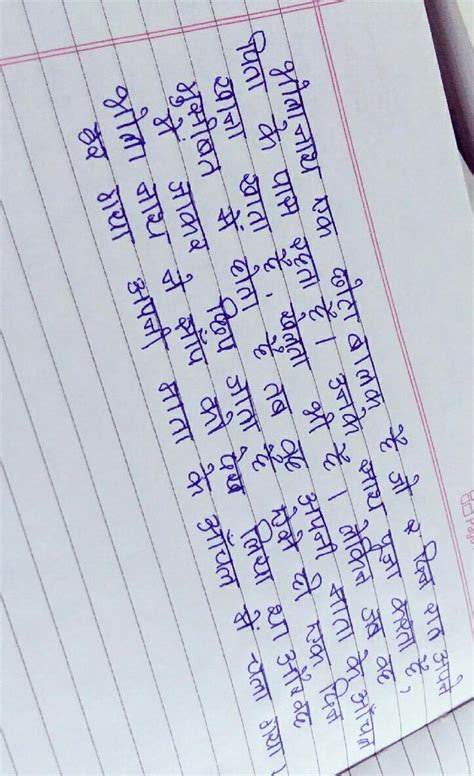 भोलानाथ एक छोटा बालक है जो व दिन रात अपने
पिता के पास रहता है। उनके साथ पूजा करता है,
खाना खाता है, खेलता भी है। लेकिन जब वह
मुसीबत में होता है तब वह अपनी माता के आँचल
में जाकर छिप जाता है ऐसे ही एक दिन
भोला नाथ ने साँप को देख लिया था और वह
डर गया अपनी माता के आँचल में चला गया।